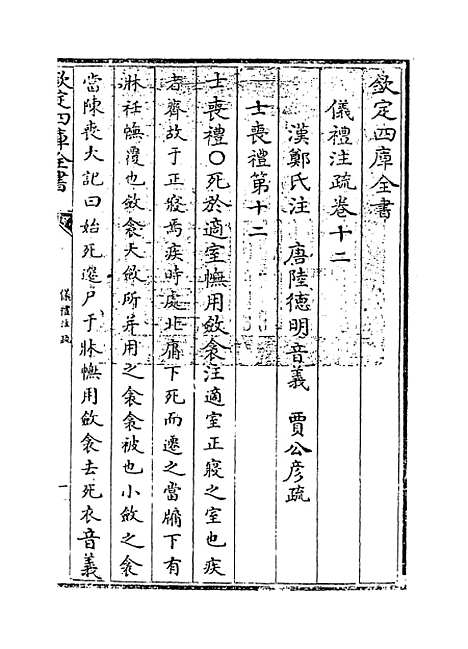 欽定四庫全書
儀禮注疏卷十二
漢鄭氏注　唐陸德明音義　賈公彦疏
士喪禮第十二
士喪禮○死於適室幠用斂衾注適室正寢之室也疾
者齊故于正寢焉疾時處北牖下死而遷之當牖下有
牀衽幠覆也斂衾大斂所并用之衾衾被也小斂之衾
當陳喪大記曰始死遷尸于牀幠用斂衾去死衣音義
欽定四庫全書
儀禮注疏
一